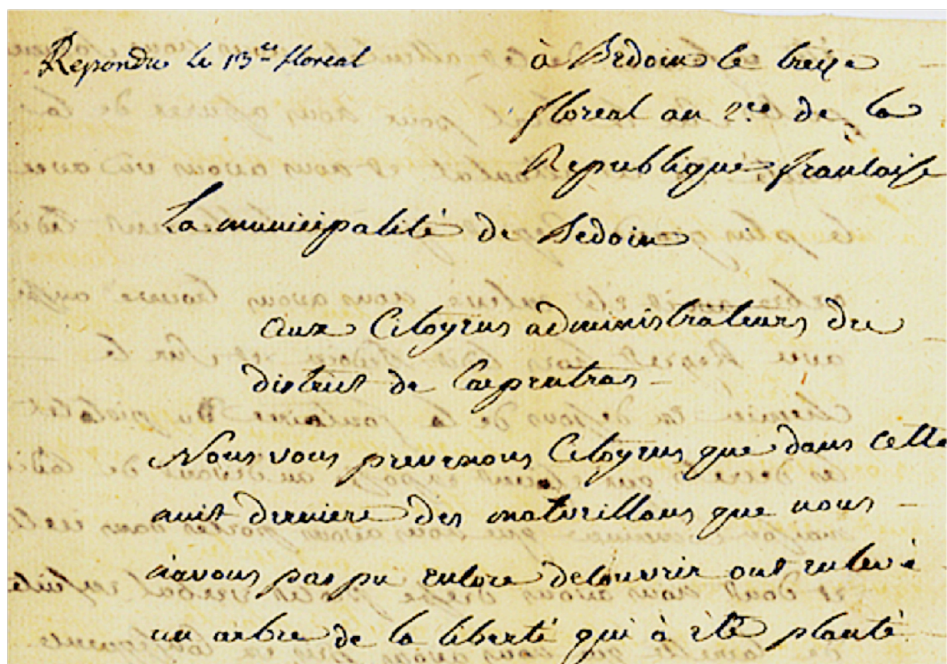 Repondu le 13.e floreal
à Bedoin le treize
floreal an 2.e de la
Republique francaise
La municipalité de Bedoin
aux Citoyens administrateurs du
district de Carpentras
Nous vous prevenons Citoyens que dans cette
nuit derniere des malveillans que nous
n'avons pas pu encore decouvrir ont enlevé
un arbre de la liberté qui à été planté